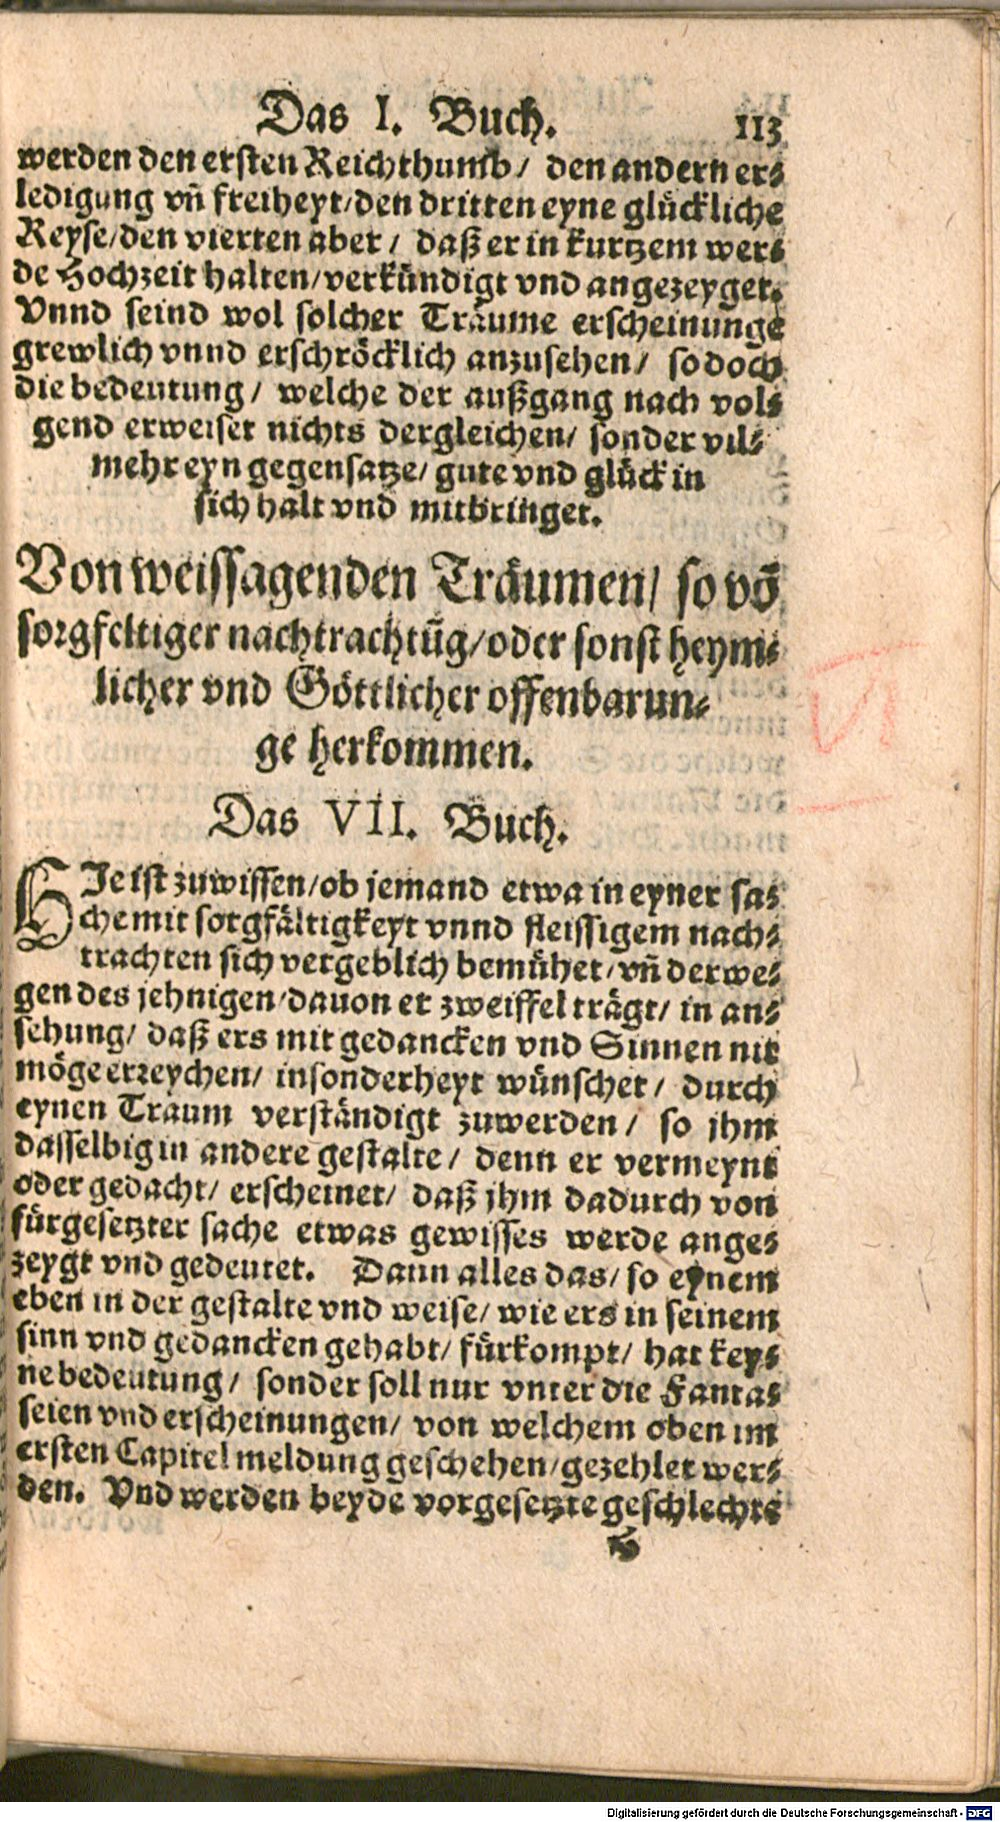 Das I. Buch. 113
werden den ersten Reichthumb/ den andern er⸗
ledigung vñ freiheyt/den dritten eyne glückliche
Reyse/den vierten aber/ daß er in kurtzem wer⸗
de Hochzeit halten/verkündigt vnd angezeyget.
Vnnd seind wol solcher Träume erscheinunge
grewlich vnnd erschröcklich anzusehen/ so doch
die bedeutung/ welche der außgang nach vol⸗
gend erweiset nichts dergleichen/ sonder vil⸗
mehr eyn gegensatze/ gute vnd glück in
sich halt vnd mitbringet.
Von weissagenden Träumen/ so võ
sorgfeltiger nachtrachtũg/oder sonst heym⸗
licher vnd Göttlicher offenbarun⸗
ge herkommen.
Das VII. Buch.
HIe ist zuwissen/ob jemand etwa in eyner sa⸗
che mit sorgfältigkeyt vnnd fleissigem nach⸗
trachten sich vergeblich bemühet/vñ derwe⸗
gen des jehnigen/dauon er zweiffel trägt/ in an⸗
sehung/ daß ers mit gedancken vnd Sinnen nit
möge erreychen/ insonderheyt wünschet/ durch
eynen Traum verständigt zuwerden/ so jhm
dasselbig in andere gestalte/ denn er vermeynt
oder gedacht/ erscheinet/ daß jhm dadurch von
fürgesetzter sache etwas gewisses werde ange⸗
zeygt vnd gedeutet. Dann alles das/ so eynem
eben in der gestalte vnd weise/ wie ers in seinem
sinn vnd gedancken gehabt/ fürkompt/ hat key⸗
ne bedeutung/ sonder soll nur vnter die Fanta⸗
seien vnd erscheinungen/ von welchem oben im
ersten Capitel meldung geschehen/gezehlet wer⸗
den. Vnd werden beyde vorgesetzte geschlecht
Digitalisierung gefördert durch die Deutsche Forschungsgemeinschaft - DFG